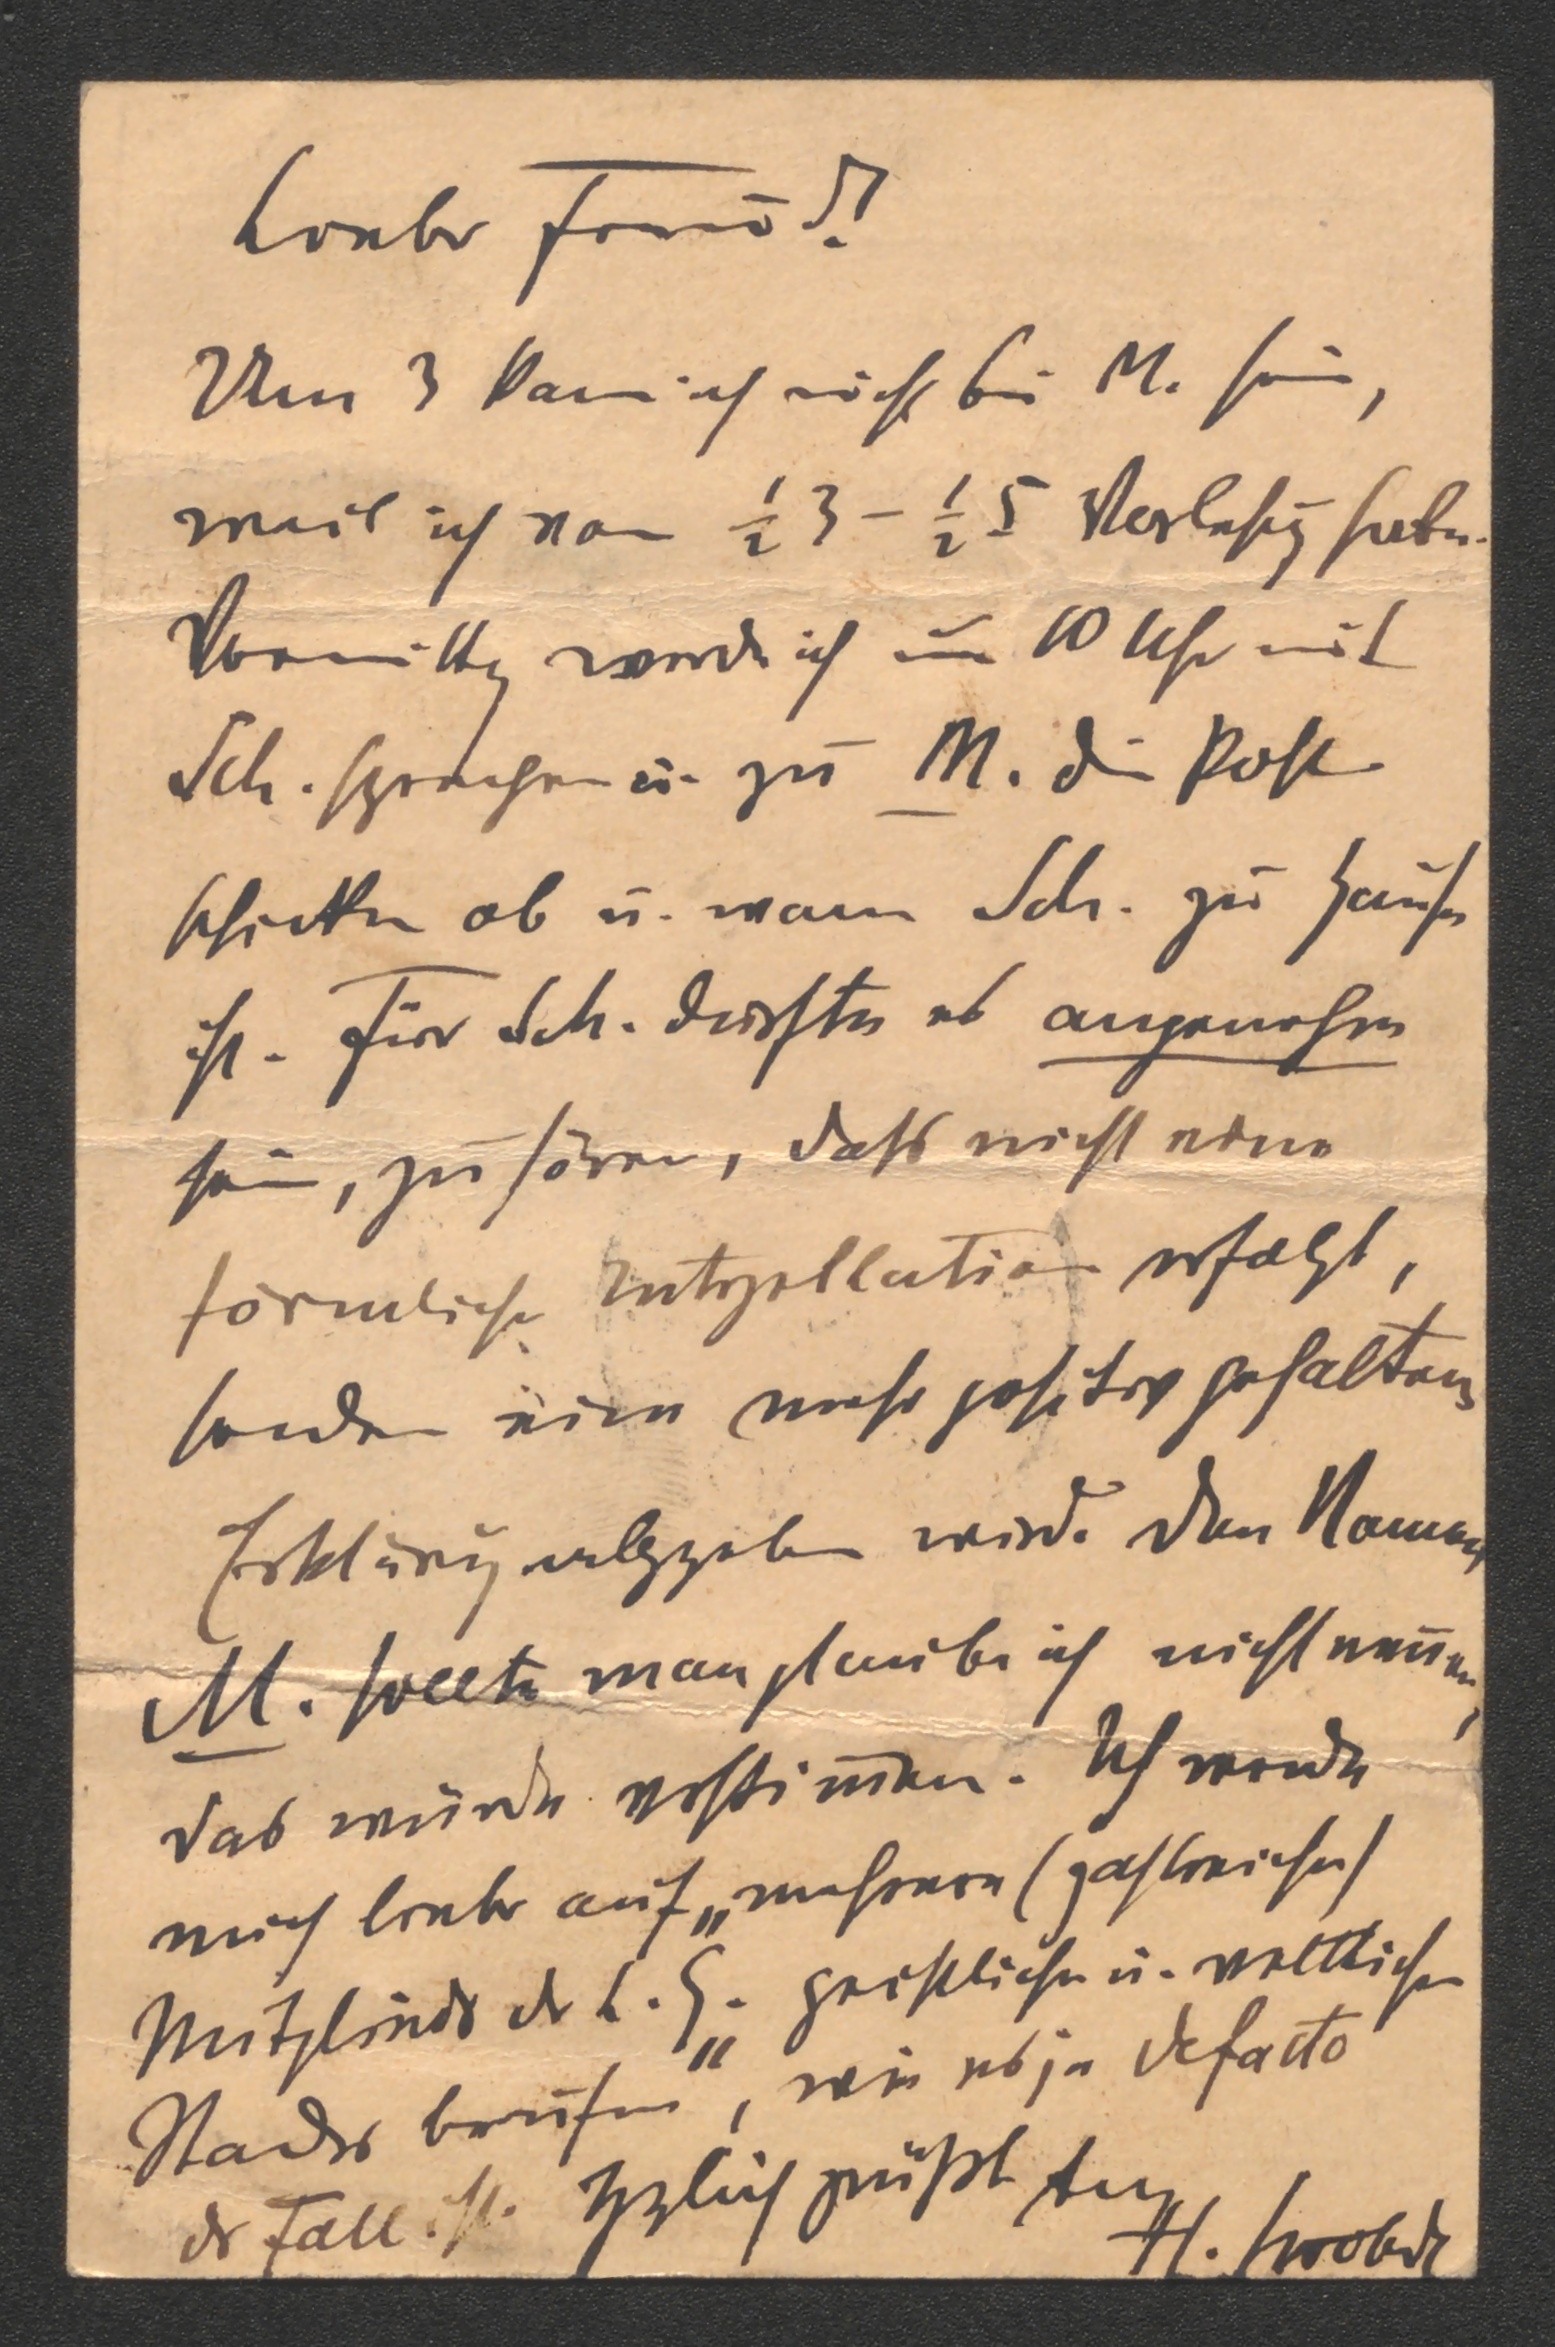 Lieber Freund!
Um 3 kann ich nicht bei M. sein,
weil ich von ½3 – ½5 Vorlesung habe.
Vormittag werde ich um 10 Uhr mit
Sch. sprechen u. zu M. die Post
schicken ob u. wann Sch. zu Hause
ist. Für Sch. dürfte es angenehm
sein, zu hören, dass nicht eine
förmliche Interpellation erfolgt,
sondern eine mehr positiv gehaltene
Erklärung abgegeben wird. Den Namen
M. sollte man glaube ich nicht nennen,
das würde verstimmen. Ich werde
mich lieber auf „mehrere (zahlreiche)
Mitglieder der L. G. geistlichen u. weltlichen
Standes berufen“, wie es ja de facto
der Fall ist. Herzlich grüßt
H. Swoboda